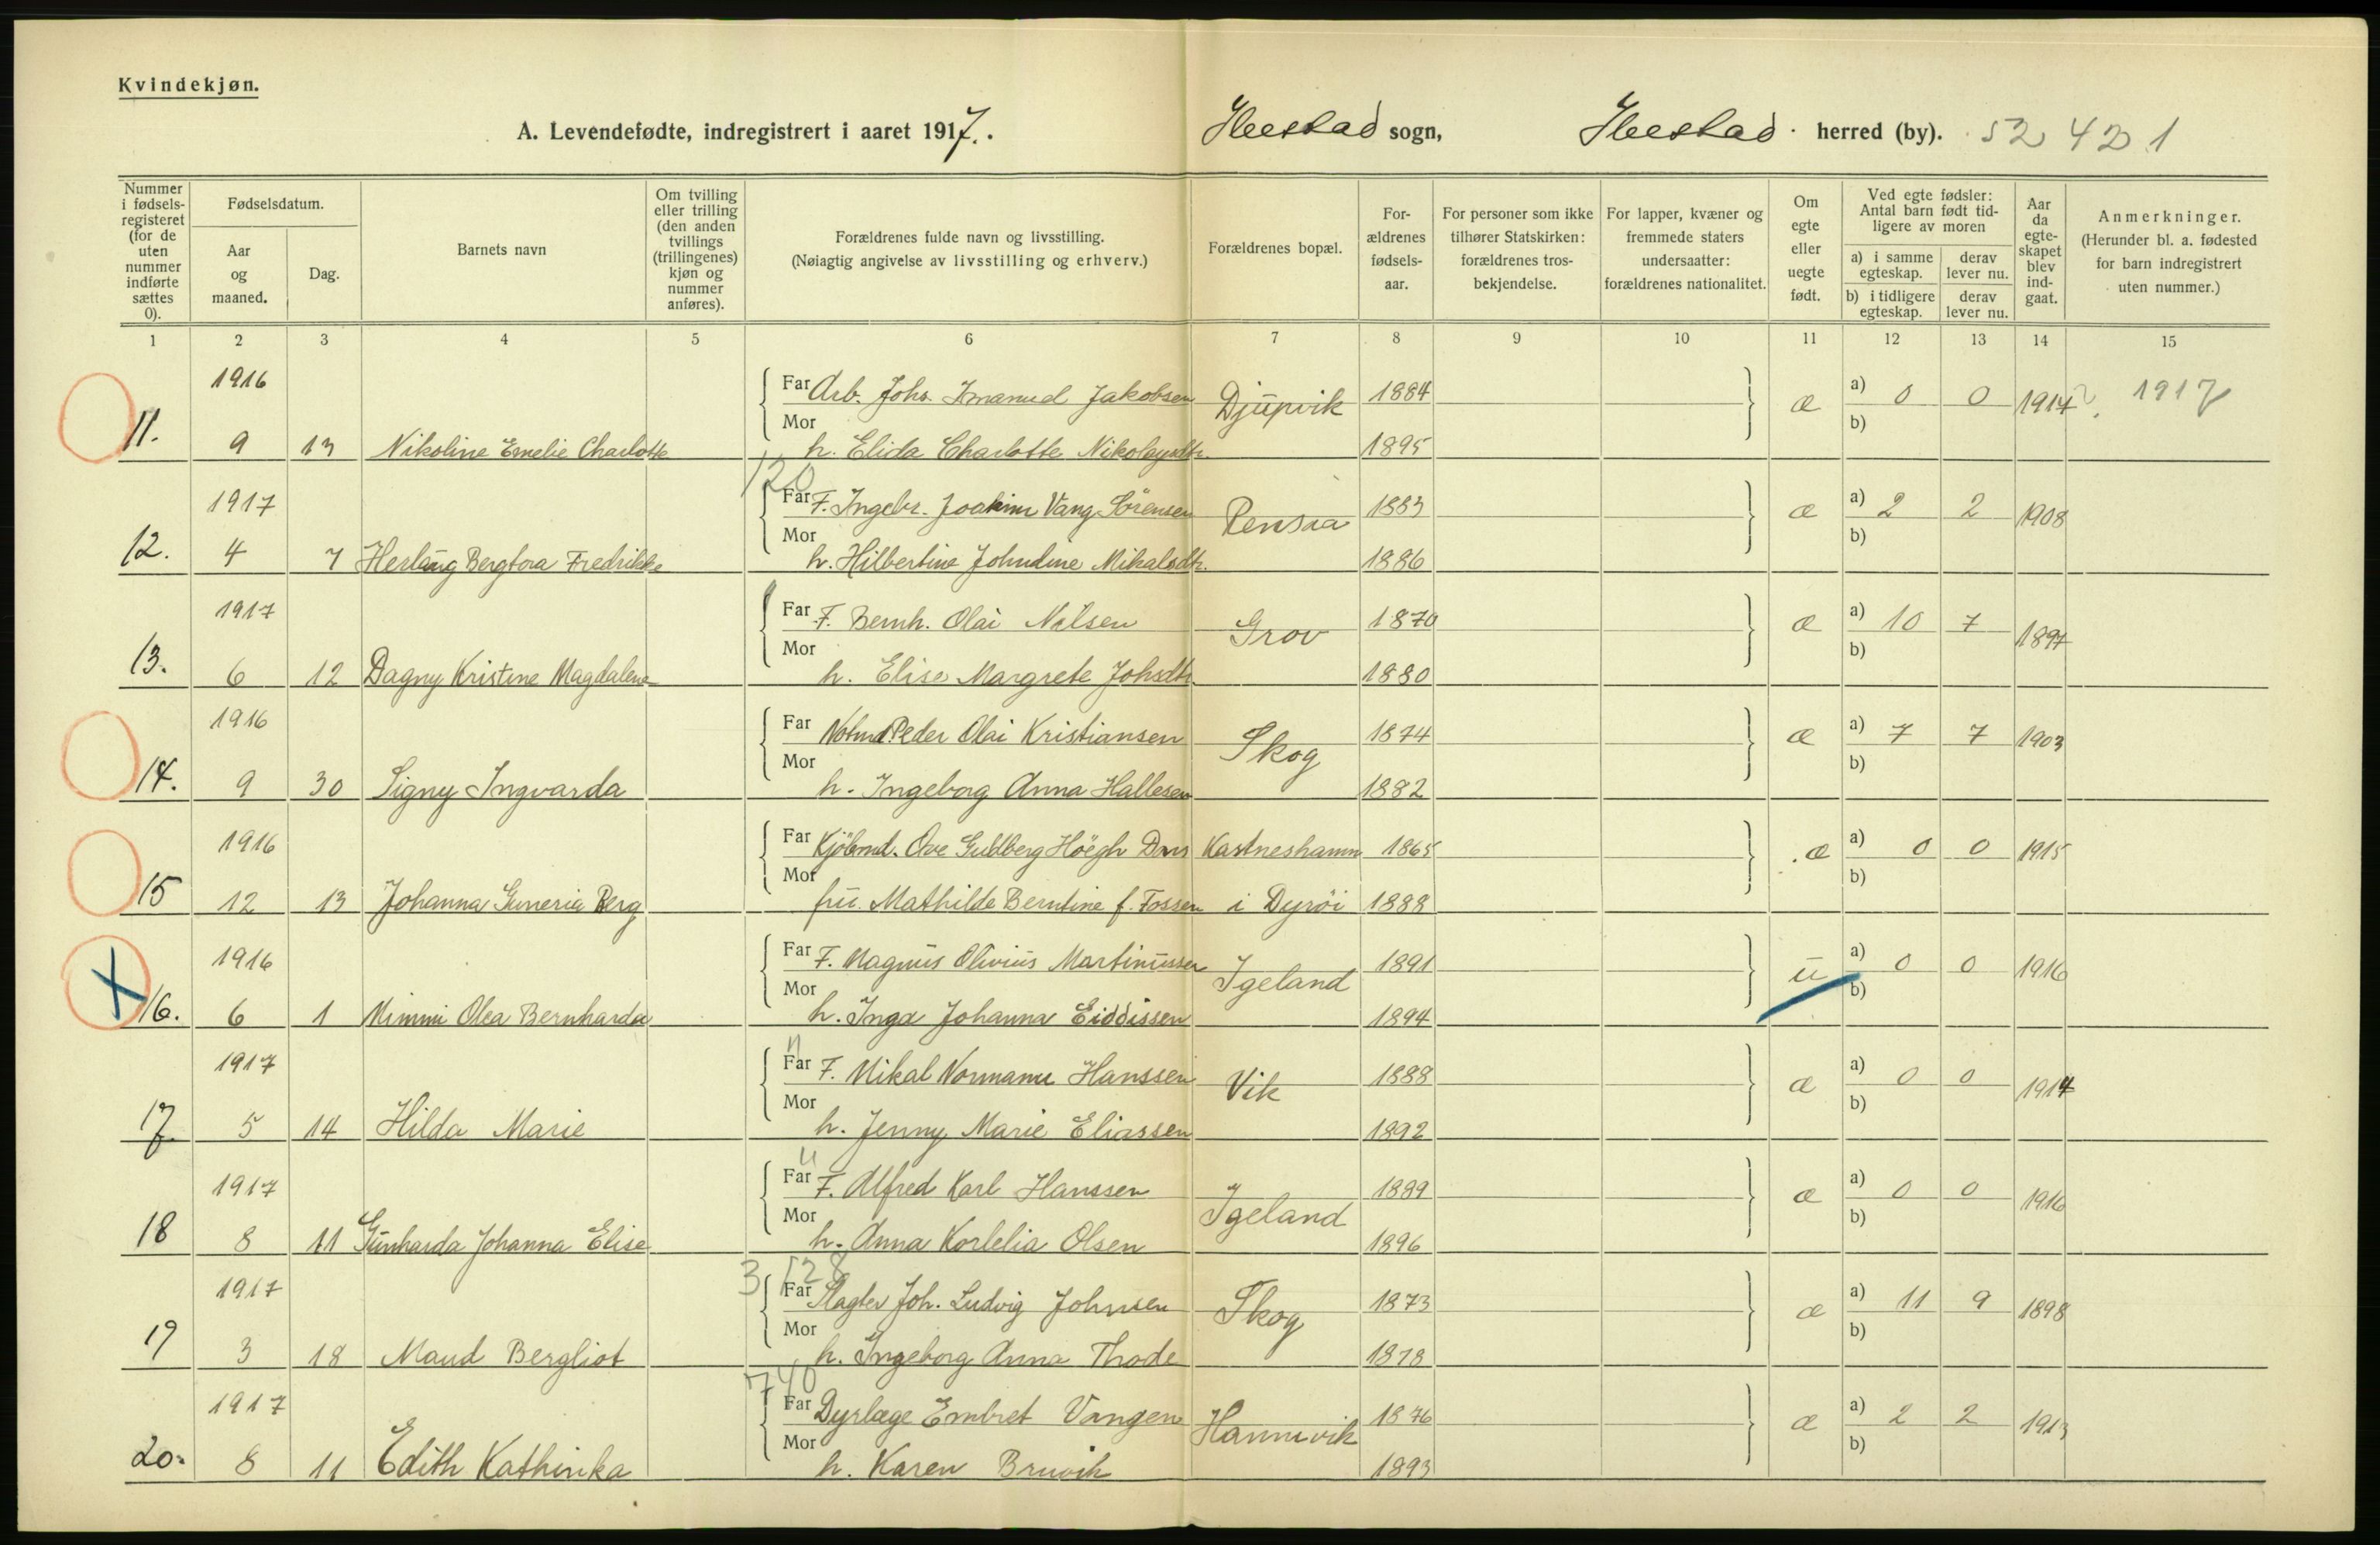 Kvindekjøn.
A. Levendefødte, indregistrert i aaret 1917. Ibestad sogn, Ibestad herred (by). 52 42 1
Nummer i fødsels-registeret (for de uten nummer indførte sættes 0).
Fødselsdatum.
Aar og maaned.
Dag.
Barnets navn
Om tvilling eller trilling (den anden tvillings (trillingenes) kjøn og nummer anføres).
Forældrenes fulde navn og livsstilling.
(Nøiagtig angivelse av livsstilling og erhverv.)
Forældrenes bopæl.
For-ældrenes fødsels-aar.
For personer som ikke tilhører Statskirken: forældrenes tros-bekjendelse.
For lapper, kvæner og fremmede staters undersaatter: forældrenes nationalitet.
Om egte eller uegte født.
Ved egte fødsler: Antal barn født tid-ligere av moren
a) i samme egteskap.
derav lever nu.
b) i tidligere egteskap.
derav lever nu.
Aar da egte-skapet blev ind-gaat.
Anmerkninger.
(Herunder bl. a. fødested for barn indregistrert uten nummer.)
1 2 3 4 5 6 7 8 9 10 11 12 13 14 15
1916 Far Arb. Johs. Imanuel Jakobsen Djupvik 1884 æ a) 0 0 1917 ? 1917
Mor b)
11. 9 13 Nikoline Emelie Charlotte h. Elida Charlotte Nikolaysdtr. 1895
120
1917 Far F. Ingebr. Joakim Vang Sörensen Rensaa 1883 æ a) 2 2 1908
Mor b)
12. 4 7 Herlaug Bergtora Fredrikke h. Hilbertine Johndine Mikalsdtr. 1886
1917 Far F. Bernh. Olai Nilsen Grov 1870 æ a) 10 7 1897
Mor b)
13. 6 12 Dagny Kristine Magdalene h. Elise Margrete Johsdtr. 1880
1916 Far Notmd. Peder Olai Kristiansen Skog 1874 æ a) 7 7 1903
Mor b)
14. 9 30 Signy Ingvarda h. Ingeborg Anna Hallesen 1882
1916 Far Kjöbmd. Ove Guldberg Höegh Kastneshamn 1865 æ a) 0 0 1915
Mor b)
15 12 13 Johanna Guneria Berg fru Mathilde Berntine f. Fossen i Dyröi 1888
1916 Far F. Magnus Olivius Martinussen Igeland 1891 u a) 0 0 1916
Mor b)
X 16. 6 1 Mimmi Olea Bernharda h. Inga Johanna Eidissen 1894
"
1917 Far F. Mikal Normann Hanssen Vik 1888 æ a) 0 0 1914
Mor b)
17 5 14 Hilda Marie h. Jenny Marie Eliassen 1892
"
1917 Far F. Alfred Karl Hanssen Igeland 1889 æ a) 0 0 1916
Mor b)
18 8 11 Gunharda Johanna Elise h. Anna Korlelia Olsen 1896
3 128
1917 Far Slagter Joh. Ludvig Johnsen Skog 1873 æ a) 11 9 1898
Mor b)
19 3 18 Maud Bergliot h. Ingeborg Anna Thode 1878
740
1917 Far Dyrlæge Embret Vangen Hamnvik 1876 æ a) 2 2 1913
Mor b)
20. 8 11 Edith Kathinka h. Karen Bruvik 1893